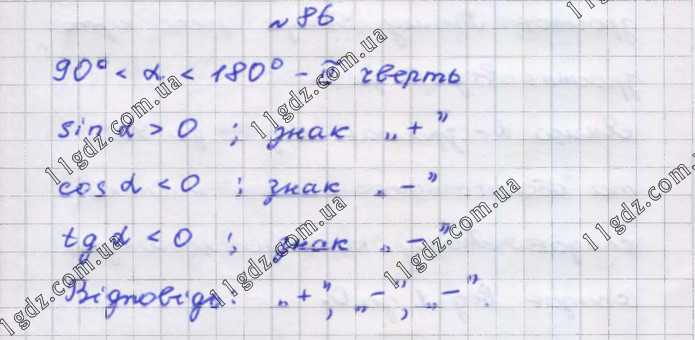 № 86
90° < α < 180° - II чверть
sin α > 0 ; знак „+”
cos α < 0 ; знак „-”
tg α < 0 ; знак „-”
Відповідь: „+”, „-”, „-”.
11gdz.com.ua
11gdz.com.ua
11gdz.com.ua
11gdz.com.ua
11gdz.com.ua
11gdz.com.ua
11gdz.com.ua